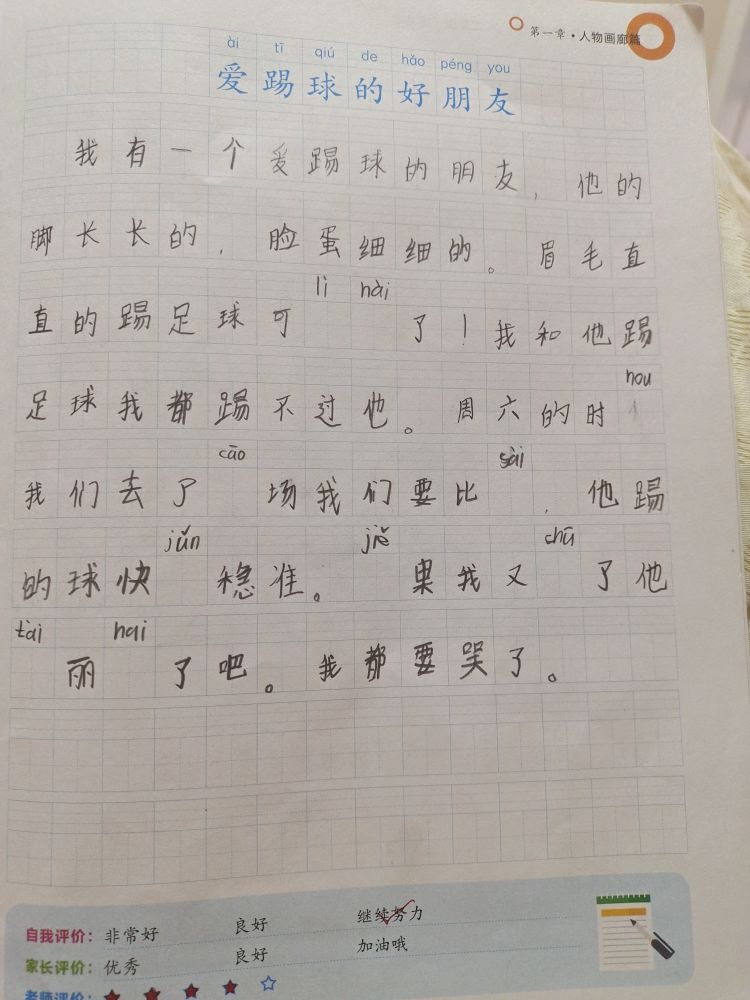 第一章·人物画廊篇
ài tī qiú de hǎo péng you
爱踢球的好朋友
我有一个爱踢球的朋友，他的
脚长长的，脸蛋细细的。眉毛直
lì hài
直的踢足球可了！我和他踢
hou
足球我都踢不过他。周六的时
cāo sài
我们去了场我们要比，他踢
jǔn jiě chū
的球快稳准。果我又了他
tài hai
丽了吧。我都要哭了。
自我评价：非常好 良好 继续努力
家长评价：优秀 良好 加油哦
老师评价：★ ★ ★ ★ ☆